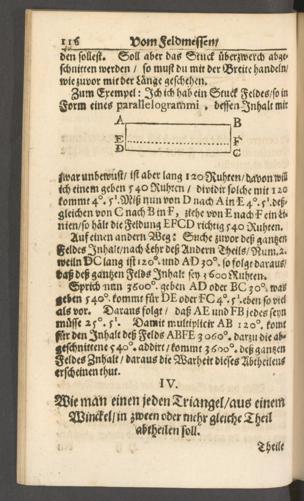 116 Vom Feldmessen/
den sollest. Soll aber das Stuck überzwerch abge-
schnitten werden / so must du mit der Breite handeln/
wie zuvor mit der Länge geschehen.
Zum Exempel: Ich ich hab ein Stuck Feldes/so in
Form eines parallelogrammi, dessen Inhalt mir
A B
E F
D C
zwar unbewust/ ist aber lang 120 Ruhten/davon will
ich einem geben 540 Ruhten / dividir solche mit 120
kommt 4°. 5'. Miß nun von D nach A in E 4°. 5'. deß-
gleichen von C nach B in F, ziehe von E nach F ein Li-
nien/so hält die Feldung EFCD richtig 540 Ruhten.
Auf einen andern Weg: Suche zuvor deß gantzen
Feldes Inhalt/nach Lehr deß Andern Theils/Num.2.
weiln DC lang ist 120°. und AD 30°. so folgt daraus/
daß deß gantzen Felds Inhalt sey 3600 Ruhten.
Sprich nun 3600°. geben AD oder BC 30°. was
geben 540°. kommt für DE oder FC 4°. 5'. eben so viel
als vor. Daraus folgt / daß AE und FB jedes seyn
müsse 25°. 5'. Damit multiplicir AB 120°, komt
für den Inhalt deß Felds ABFE 3060°. darzu die ab-
geschnittene 540°. addirt/ kommt 3600°. deß gantzen
Feldes Inhalt / daraus die Warheit dieses Abtheilens
erscheinen thut.
IV.
Wie man einen jeden Triangel/aus einem
Winckel/in zween oder mehr gleiche Theil
abtheilen soll.
Theile